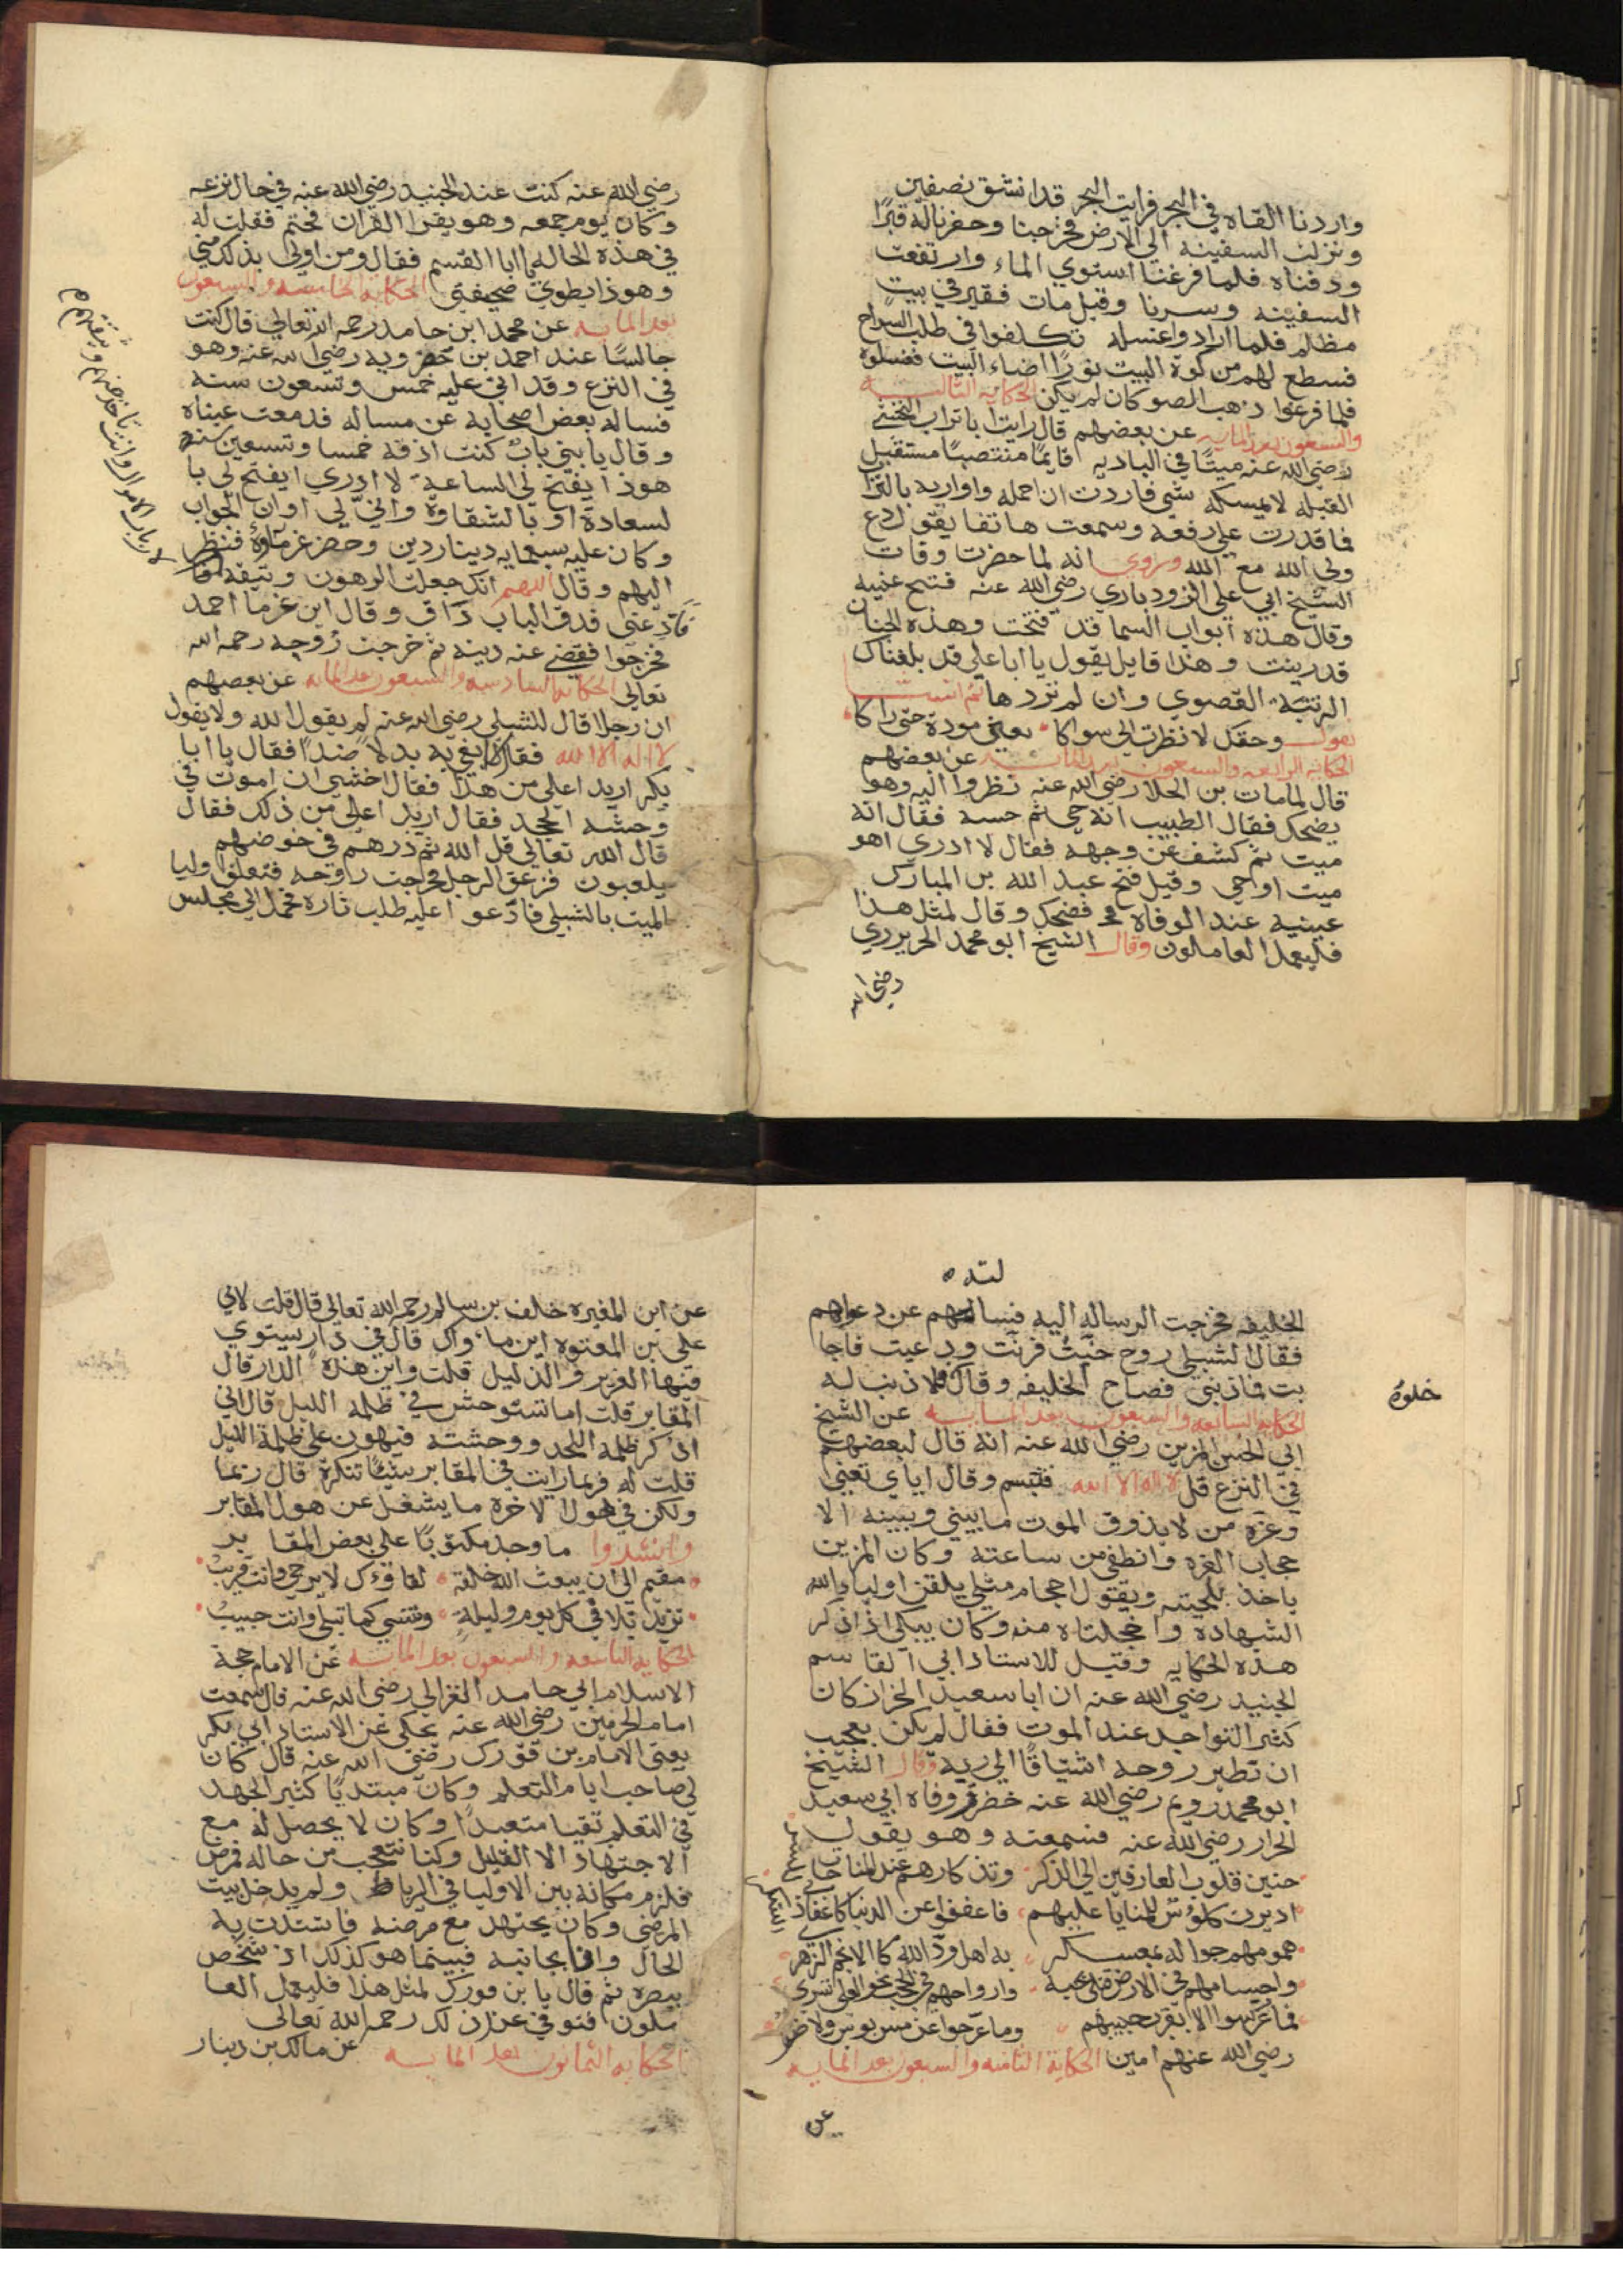 واردنا القاه في البحر فرايت البحر قد انشق نصفين
ونزلت السفينه الي الارض فخرجنا وحفرنا له قبرًا
ودفناه فلما فرغنا استوي الماء وارتفعت
السفينه وسرنا وقيل مات فقير في بيت
مظلم فلما ارادوا غسله تكلفوا في طلب السراج
فسطع لهم من كوة البيت نورًا اضاء البيت فغسلوه
فلما فرغوا ذهب الضو كان لم يكن الحكايه الثالثــــه
والسبعون بعد المايه عن بعضهم قال رايت ابا تراب النخشي
رضي الله عنه ميتًا في الباديه قايمًا منتصبًا مستقبل
القبله لا يمسكه شي فاردت ان احمله واواريه بالتراب
فما قدرت علي رفعه وسمعت هاتفا يقول دع
ولي الله مع الله وروي انه لما حضرت وفات
الشيخ ابي علي الروذباري رضي الله عنه فتح عينيه
وقال هذه ابواب السما قد فتحت وهذه الجنان
قد زينت وهذا قايل يقول يا ابا علي قد بلغناك
الرتبة القصوي وان لم تردها ثم انشــــا
يقول وحقك لا نظرت الي سواكا بعين مودة حتي اراكا
الحكايه الرابعه والسبعون بعد المايــه عن بعضهم
قال لما مات بن الجلا رضي الله عنه نظروا اليه وهو
يضحك فقال الطبيب انه حي ثم جسه فقال انه
ميت ثم كشف عن وجهه فقال لا ادري اهو
ميت او حي وقيل فتح عبد الله بن المبارك
عينيه عند الوفاه فضحك وقال لمثل هذا
فليعمل العاملون وقال الشيخ ابو محمد الحريري
رضي الله
رضي الله عنه كنت عند الجنيد رضي الله عنه في حال نزعه
وكان يوم جمعه وهو يقرا القران فختم فقلت له
في هذه الحاله يا ابا القسم فقال ومن اولي بذلك مني
وهو ذا يطوي صحيفتي الحكايه الخامسه والسبعون
بعد المايه عن محمد ابن حامد رحمه الله تعالي قال كنت
جالسًا عند احمد بن خضرويه رضي الله عنه وهو
في النزع وقد اتي عليه خمس وتسعون سنه
فساله بعض اصحابه عن مساله فدمعت عيناه
وقال يا بني باب كنت ادقه خمسا وتسعين سنه
هوذا يفتح لي الساعة لا ادري ايفتح لي با
لسعادة او بالشقاوة واني لي اوان الجواب
وكان عليه سبعمايه دينار دين وحضر غرماؤه فنظر
اليهم وقال اللهم انك جعلت الرهون وثيقه
فادّ عني فدق الباب داق وقال اين غرما احمد
فخرجوا فقضي عنه دينه ثم خرجت روحه رحمه الله
تعالي الحكايه السادسه والسبعون بعد المايه عن بعضهم
ان رجلا قال للشبلي رضي الله عنه لم يقول الله ولا يقول
لا اله الا الله فقال لا ابغي به بدلًا ضدًا فقال يا ابا
بكر اريد اعلي من هذا فقال اخشي ان اموت في
وحشه الجحد فقال اريد اعلي من ذلك فقال
قال الله تعالي قل الله ثم ذرهم في خوضهم
يلعبون فزعق الرجل فخرجت روحه فتعلق وليا
الميت بالشبلي فادعوا عليه طلب ثاره فحمل الي مجلس
الخليفه فخرجت الرساله اليه فسالهم عن دعواهم
فقال الشبلي روح حنّت فرنّت ودعيت فاجا
بت فما ذنبي فصاح الخليفه وقال فلا ذنب له
خلوه
الحكايه السابعه والسبعون بعد المايــه عن الشيخ
ابي الحسن المزين رضي الله عنه انه قال لبعضهم
في النزع قل لا اله الا الله فتبسم وقال اياي تعني
وعزه من لا يذوق الموت ما بيني وبينه الا
حجاب العزه وانطفي من ساعته وكان المزين
ياخذ بلحيته ويقول احجام مثلي يلقن اوليا الله
الشهاده واخجلتاه منه وكان يبكي اذا ذكر
هذه الحكايه وقيل للاستاد ابي القاسم
الجنيد رضي الله عنه ان ابا سعيد الخراز كان
كثير التواجد عند الموت فقال لم يكن بعجيب
ان تطير روحه اشتياقًا الي ربه وقال الشيخ
ابو محمد رويم رضي الله عنه حضرت وفاة ابي سعيد
الخراز رضي الله عنه فسمعته وهو يقول
حنين قلوب العارفين الي الذكر وتذكارهم عند المناجاة
اديرت كاوس للمنايا عليهم فاغفوا عن الدنيا كاغفاء
همومهم جواله بمعسكر به اهل ودّ الله كالانجم الزهر
واجسامهم في الارض قتلي بحبه وارواحهم في الحجب نحو العلي تسري
فما عرّسوا الا بقرب حبيبهم وما عرّجوا عن مس بوس ولا ضر
رضي الله عنهم امين الحكاية الثامنه والسبعون بعد المايــه
عن
عن ابن المغيره خلف بن سالم رحمه الله تعالي قال قلت لابي
علي بن المعتوه اين ماواك قال في دار يستوي
فيها العزيز والذليل قلت واين هذه الدار قال
المقابر قلت اما تستوحش في ظلمة الليل قال اني
اذكر ظلمة اللحد ووحشته فيهون علي ظلمة الليل
قلت له فربما رايت في المقابر شيئًا تنكره قال ربما
ولكن في هول الاخرة ما يشغل عن هول المقابر
وانشدوا ما وجد مكتوبًا علي بعض المقابر
مقيم الي ان يبعث الله خلقه لقاؤك لا يرجي وانت قريب
تزيد بلا في كل يوم وليلة وتنسي كما تبلي وانت حبيب
الحكايه التاسعه والسبعون بعد المايــه عن الامام حجة
الاسلام ابي حامد الغزالي رضي الله عنه قال سمعت
امام الحرمين رضي الله عنه يحكي عن الاستاد ابي بكر
يعني الامام بن فورك رضي الله عنه قال كان
لي صاحب ايام التعلم وكان مبتديًا كثير الجهد
في التعلم تقيا متعبدًا وكان لا يحصل له مع
الاجتهاد الا القليل وكنا نتعجب من حاله فمرض
فلزم مكانه بين الاوليا في الرباط ولم يدخل بيت
المرضي وكان يجتهد مع مرضه فاشتدت به
الحال وانا بجانبه فبينما هو كذلك اذ شخص
ببصره ثم قال يا بن فورك لمثل هذا فليعمل العا
ملون فتوفي عند ذلك رحمه الله تعالي
الحكايه الثمانون بعد المايــه عن مالك بن دينار